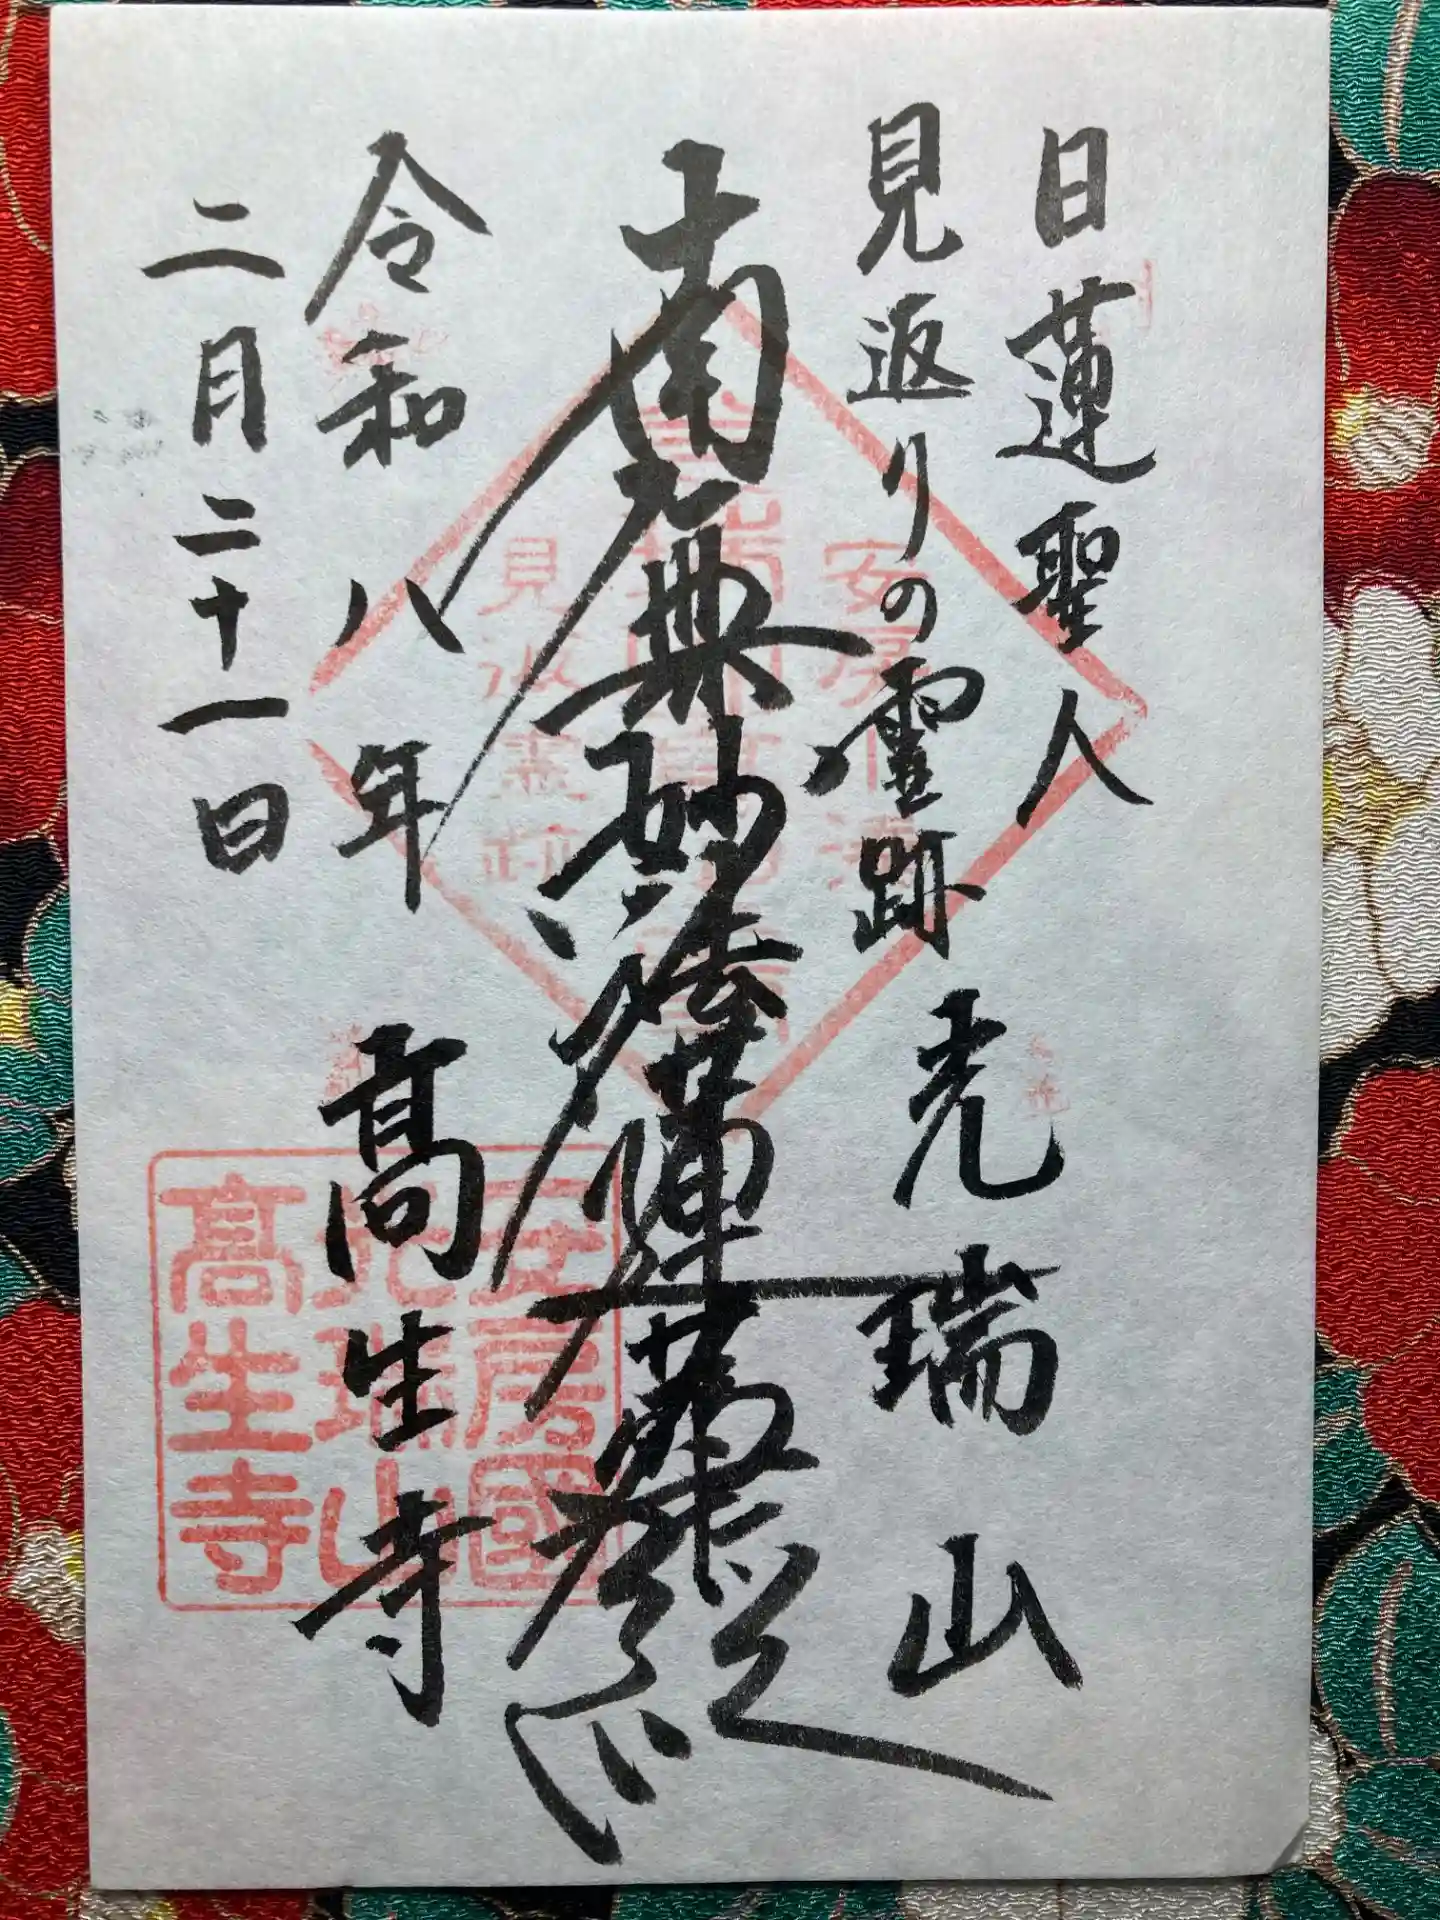 日蓮聖人
見返りの霊跡
光瑞山
南無妙法蓮華経
令和八年
二月二十一日
高生寺
安房國
光瑞山
高生寺